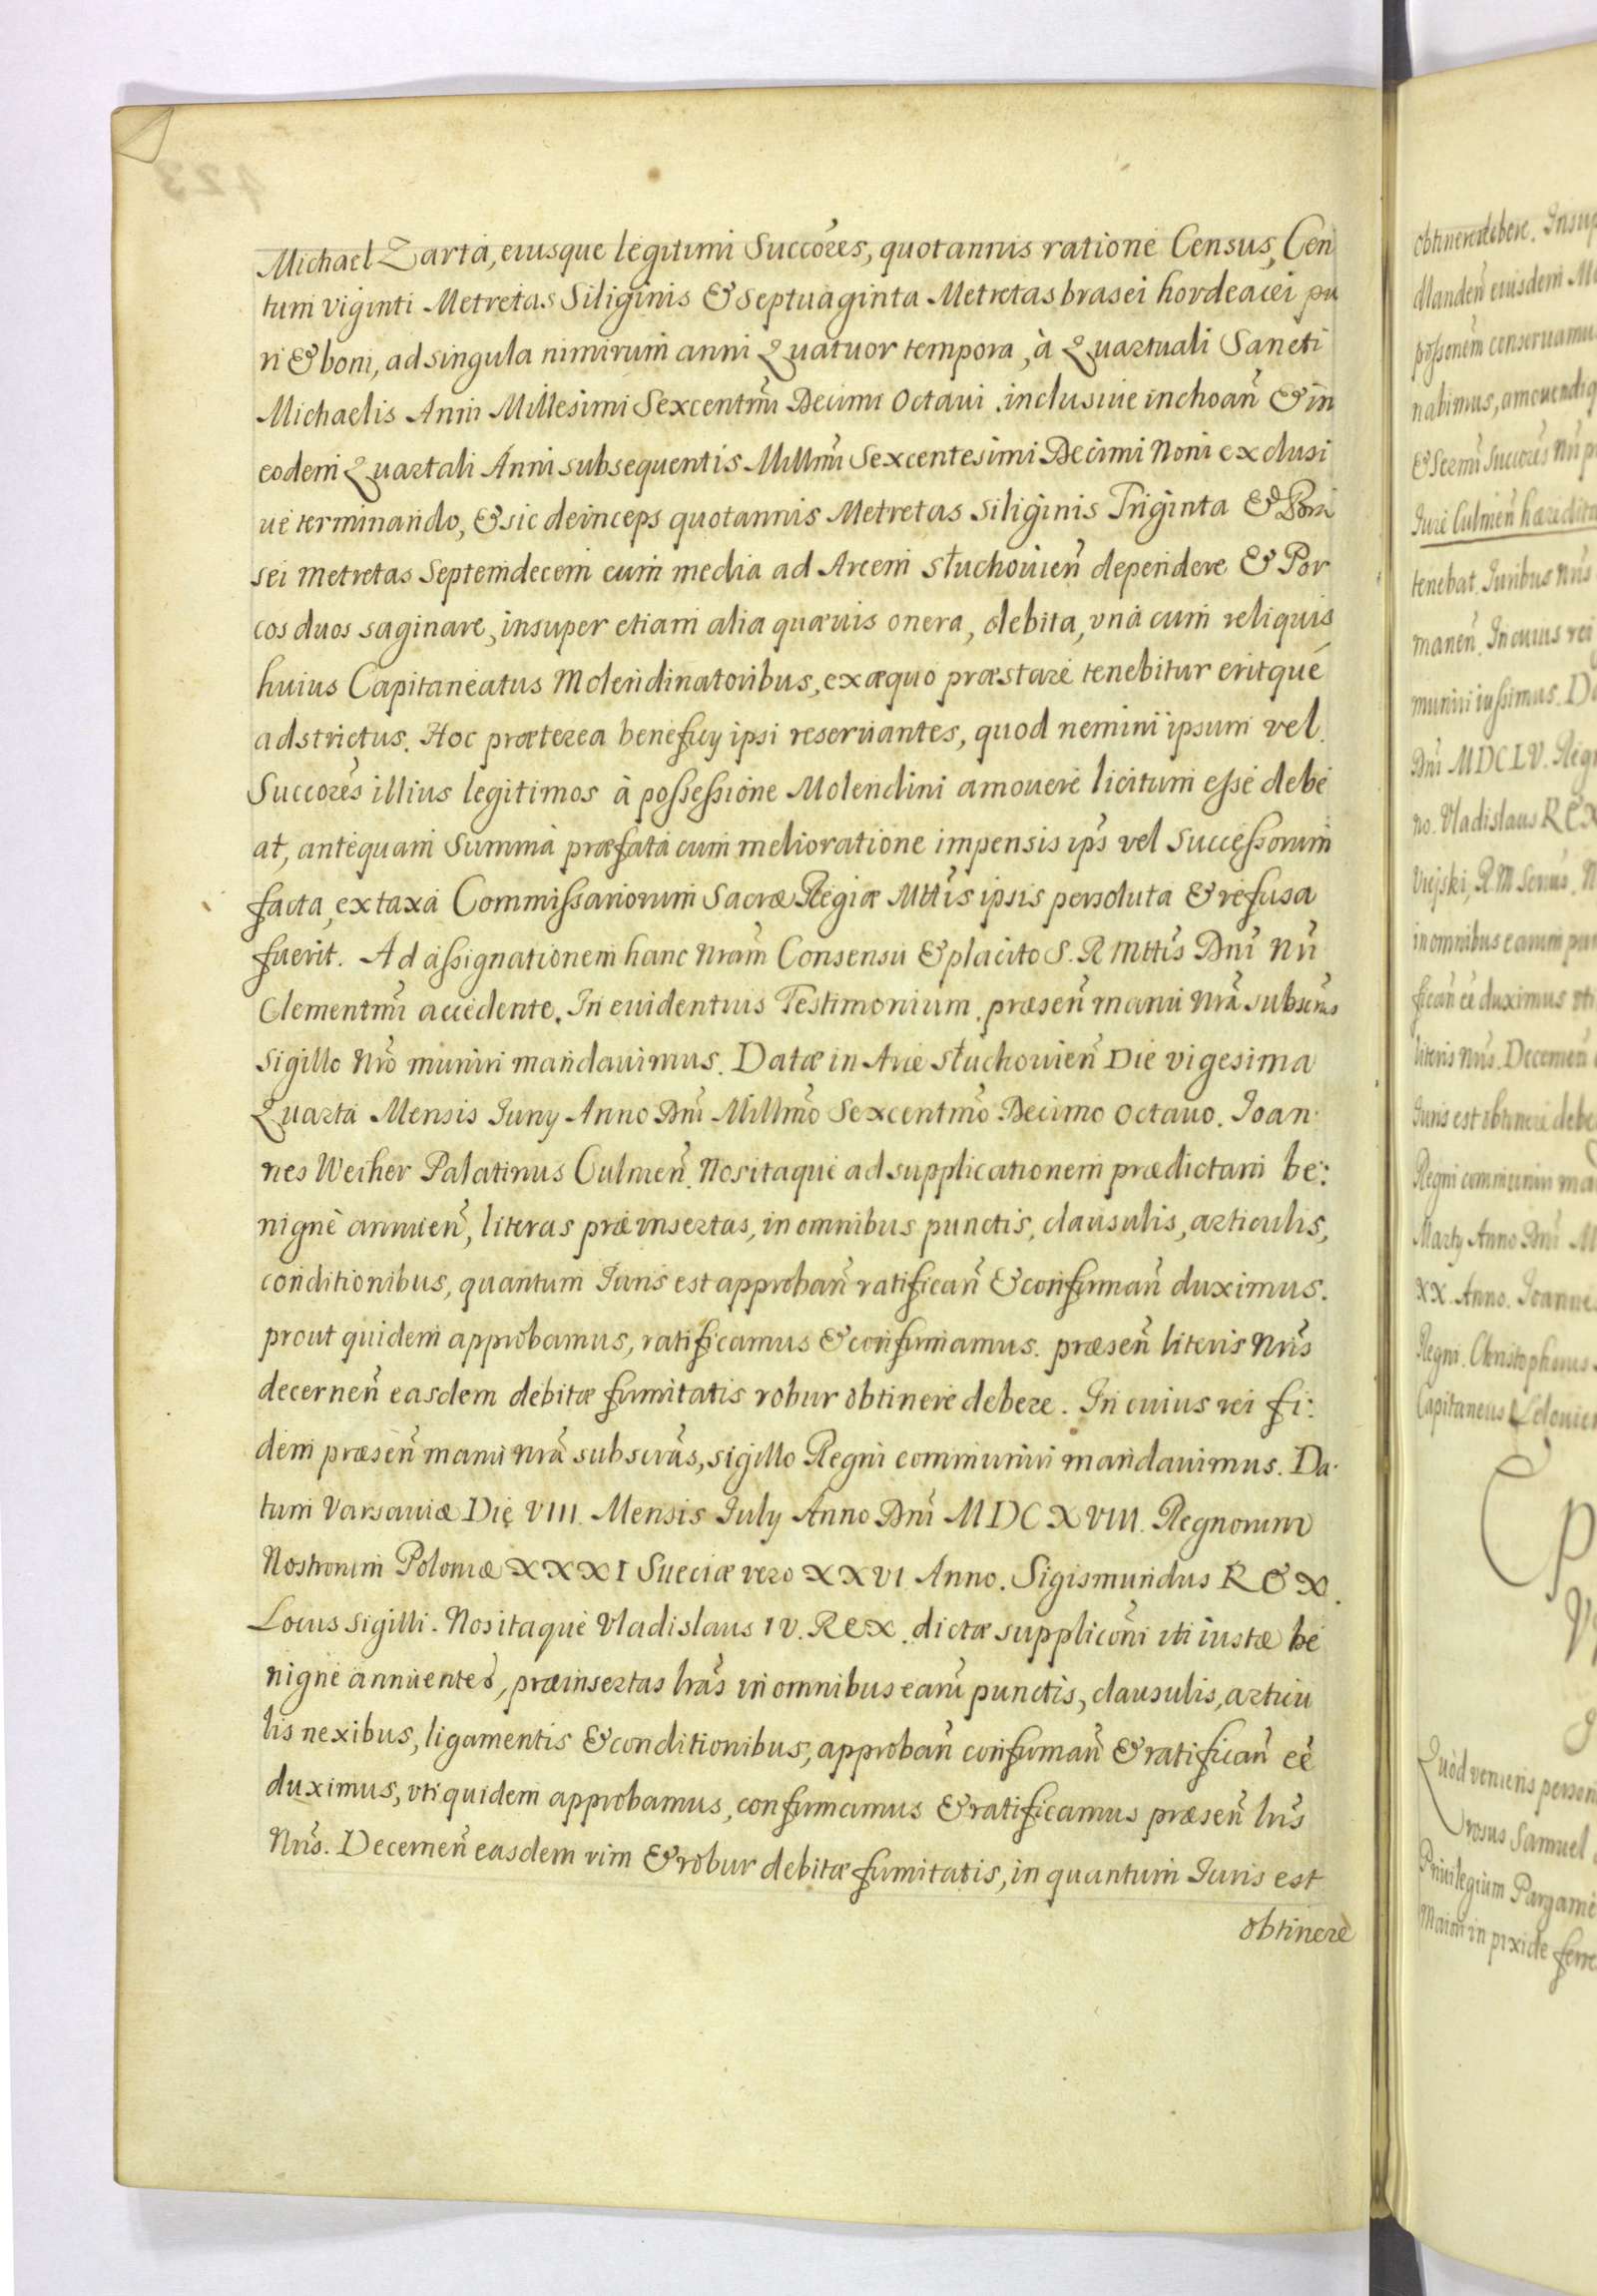 Michael Zarta, eiusque legitimi Succores, quotannis ratione Census, Cen
tum viginti Metretas Siliginis & Septuaginta Metretas brasei hordeacei pu
ri & boni, ad singula nimirum anni Quatuor tempora, à Quartuali Sancti
Michaelis Anni Millesimi Sexcentmi Decimi Octaui inclusiue inchoan̄ & in
eodem Quartali Anni subsequentis Millmi Sexcentesimi Decimi Noni exclusi
ue terminando, & sic deinceps quotannis Metretas siliginis Triginta & Bra
sei metretas Septemdecem cum media ad Arcem Słuchouien̄ dependere & Por
cos duos saginare, insuper etiam alia quæuis onera, debita, vna cum reliquis
huius Capitaneatus Molendinatoribus, exæquo præstare tenebitur eritque
adstrictus. Hoc præterea beneficy ipsi reseruantes, quod nemini ipsum vel
Succores illius legitimos à possessione Molendini amouere licitum esse debe
at, antequam Summa præfata cum melioratione impensis ips̄ vel Successorum
facta, ex taxa Commissariorum Sacræ Regiæ Mttis ipsis persoluta & refusa
fuerit. Ad assignationem hanc Nram Consensu & placito S. R Mttis Dni Nri
Clementmi accedente. In euidentius Testimonium præsen̄ manu Nra subscras
sigillo Nro muniri mandauimus. Datæ in Arce Słuchouien̄ Die vigesima
Quarta Mensis Iuny Anno Dni Millmo Sexcentmo Decimo Octauo. Joan
nes Weiher Palatinus Culmen̄. Nos itaque ad supplicationem prædictam be:
nigne annuen̄, literas præinsertas, in omnibus punctis, clausulis, articulis,
conditionibus, quantum Iuris est approban̄ ratifican̄ & confirman̄ duximus.
prout quidem approbamus, ratificamus & confirmamus. præsen̄ literis Nris
decernen̄ easdem debitæ firmitatis robur obtinere debere. In cuius rei fi:
dem præsen̄ manu nra subscras, sigillo Regni communiri mandauimus. Da
tum Varsauiæ Die VIII. Mensis July Anno Dni MDCXVIII. Regnorum
Nostrorum Poloniæ XXXI Sueciæ vero XXVI Anno. Sigismundus REX.
Locus sigilli. Nos itaque Vladislaus IV. REX. dictæ suppliconi uti iustæ be
nigne annuentes, præinsertas lras in omnibus earu punctis, clausulis, articu
lis nexibus, ligamentis & conditionibus, approban̄ confirman̄ & ratifican̄ eē
duximus, vti quidem approbamus, confirmamus & ratificamus præsen̄ lris
Nris. Decernen̄ easdem vim & robur debitæ firmitatis, in quantum Iuris est
obtinere